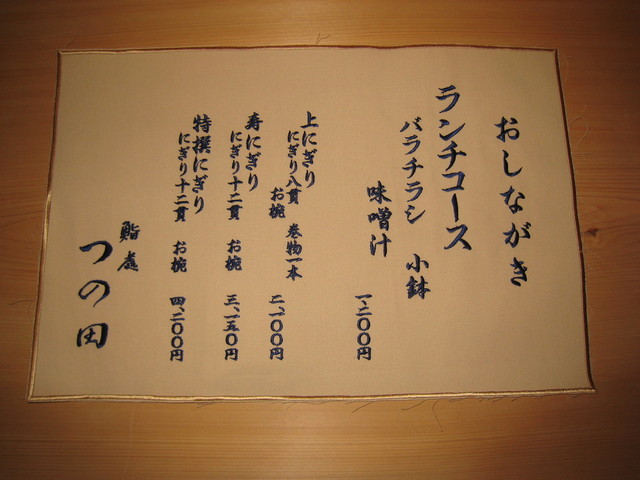 おしながき
ランチコース
バラチラシ 小鉢
味噌汁
一、二〇〇円
上にぎり
にぎり八貫 巻物一本
お椀 二、一〇〇円
寿にぎり
にぎり十二貫 お椀 三、一五〇円
特撰にぎり
にぎり十二貫 お椀 四、二〇〇円
鮨處
つの田